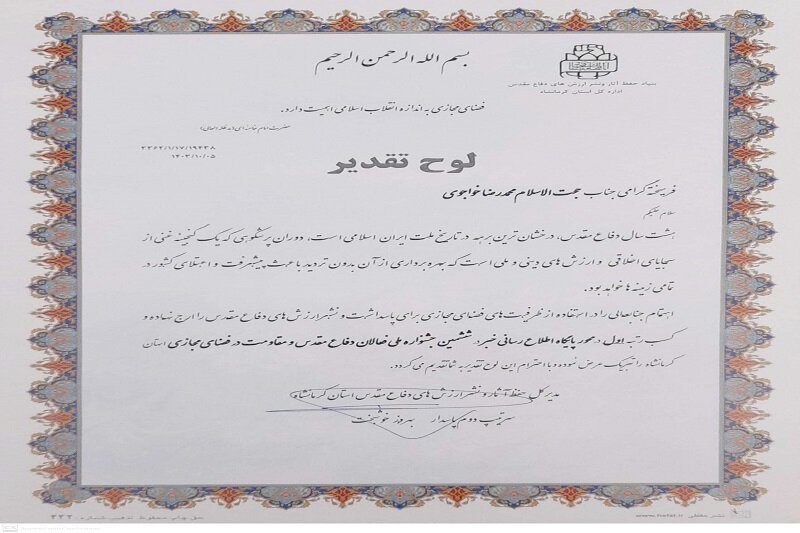 بسم الله الرحمن الرحیم
بنیاد حفظ آثار و نشر ارزش های دفاع مقدس
اداره کل استان کرمانشاه
فضای مجازی به اندازه انقلاب اسلامی اهمیت دارد.
حضرت امام خامنه ای (مدظله العالی)
۳۳۶۲/۱/۱۷/۱۹۴۳۸
۱۴۰۳/۱۰/۰۵
لوح تقدیر
فریخته گرامی جناب حجت الاسلام محمدرضا خواجوی
سلام علیکم
هشت سال دفاع مقدس، درخشان ترین برهه در تاریخ ملت ایران اسلامی است، دوران پرشکوهی که یک گنجینه غنی از
سجایای اخلاقی و ارزش های دینی و ملی است که بهره برداری از آن بدون تردید باعث پیشرفت و اعتلای کشور در
تمامی زمینه ها خواهد بود.
اهتمام جنابعالی را در استفاده از ظرفیت های فضای مجازی برای پاسداشت و نشر ارزش های دفاع مقدس را ارج نهاده و
کسب رتبه اول در محور پایگاه اطلاع رسانی خبر، ششمین جشنواره ملی فعالان دفاع مقدس و مقاومت در فضای مجازی استان
کرمانشاه را تبریک عرض نموده و با احترام این لوح تقدیر به شما تقدیم می گردد.
مدیر کل حفظ آثار و نشر ارزش های دفاع مقدس استان کرمانشاه
سرتیپ دوم پاسدار بهروز خوشبخت
حق چاپ محفوظ تذهیبی شماره ۳۳۲
www.hafzi.ir نشر حفظی